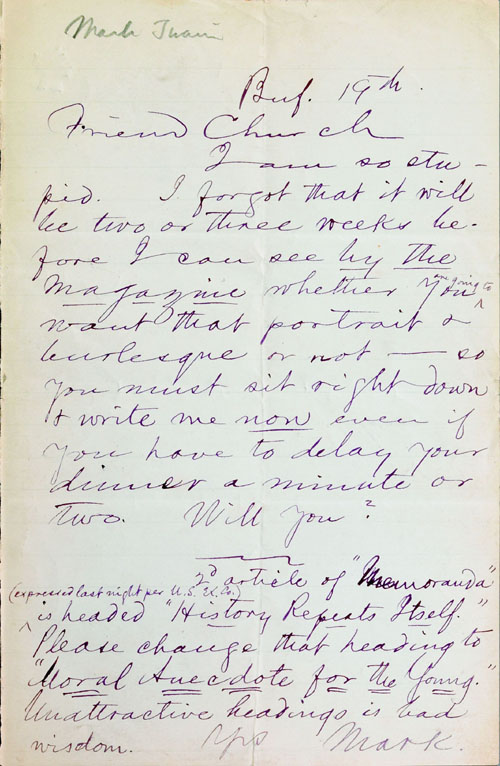 Mark Twain
Buf. 19th.
Friend Church
I am so stu-
pid. I forgot that it will
be two or three weeks be-
fore I can see by the
magazine whether you are going to
want that portrait &
burlesque or not — so
you must sit right down
& write me now even if
you have to delay your
dinner a minute or
two. Will you?
2d article of "Memoranda"
(expressed last night per U.S. Ex. Co.)
is headed "History Repeats Itself."
Please change that heading to
"Moral Anecdote for the Young."
Unattractive headings is bad
wisdom. Yrs Mark.